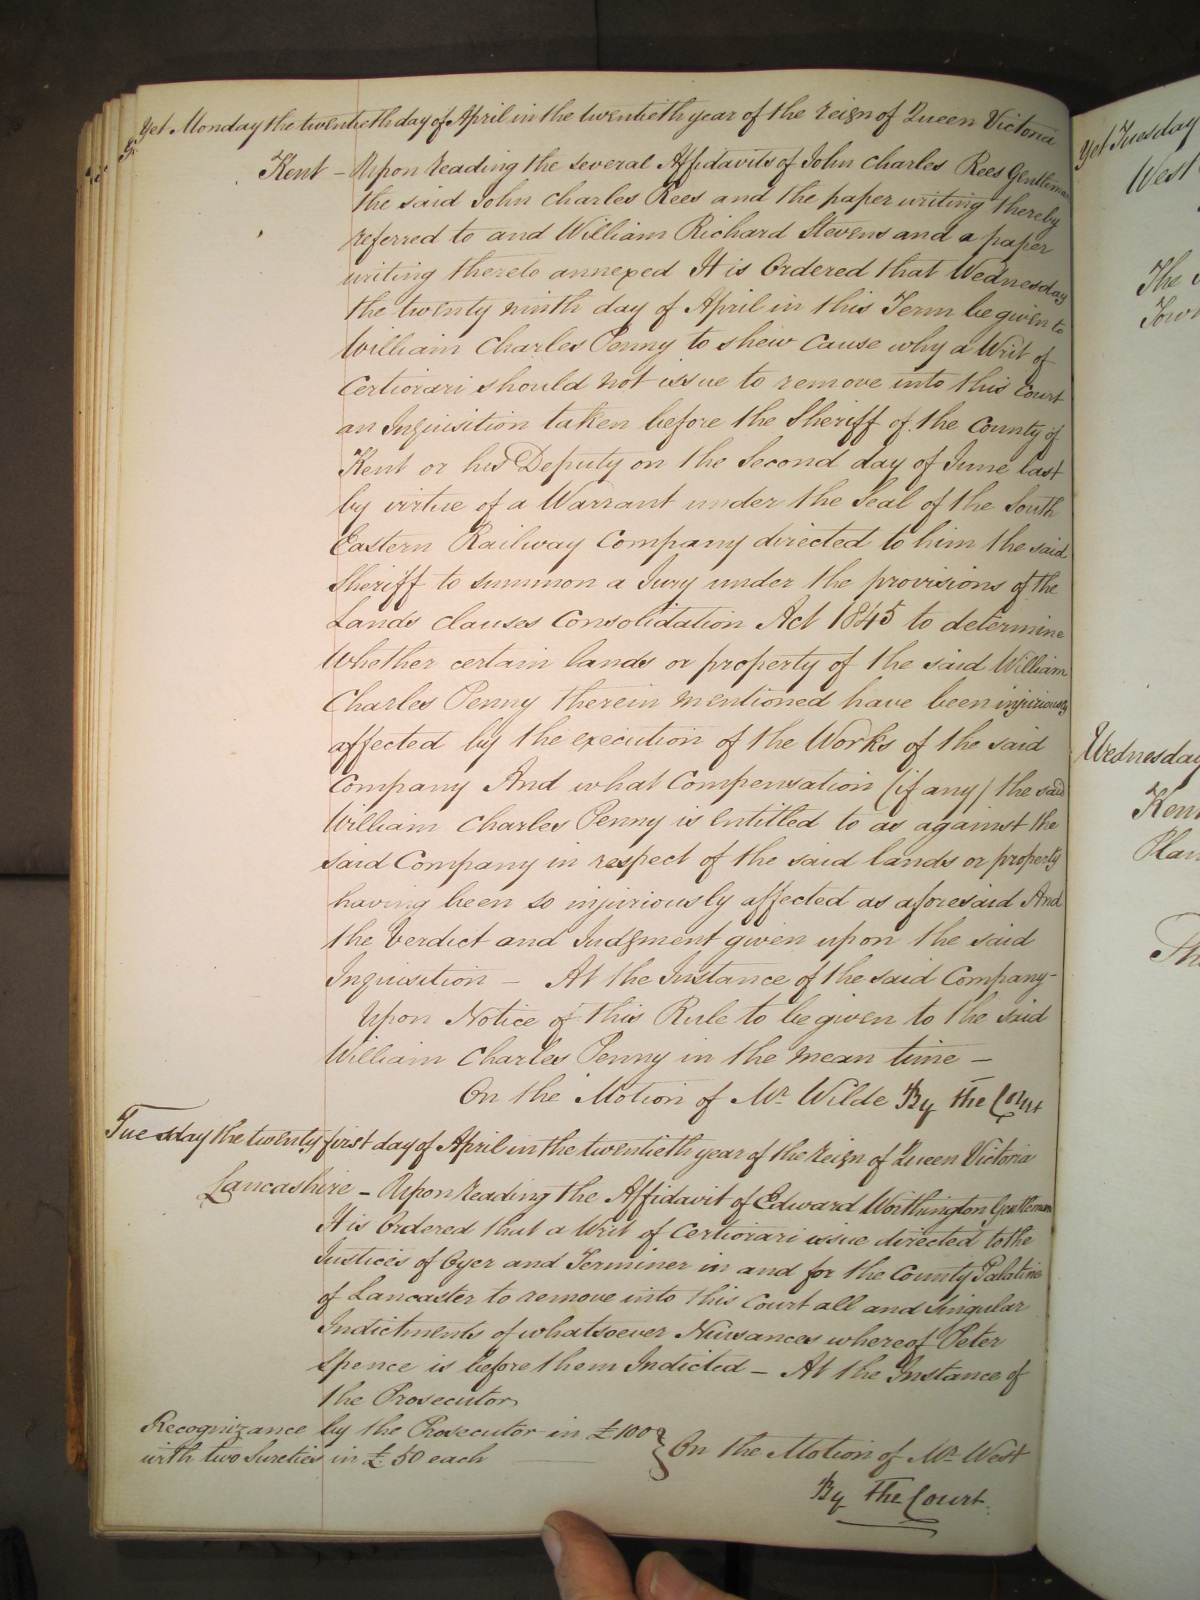 Yet Monday the twentieth day of April in the twentieth year of the reign of Queen Victoria
Kent – Upon reading the several Affidavits of John Charles Rees Gentleman
the said John Charles Rees and the paper writing thereby
referred to and William Richard Stevens and a paper
writing thereto annexed It is Ordered that Wednesday
the twenty ninth day of April in this Term be given to
William Charles Penny to shew Cause why a Writ of
Certiorari should not issue to remove into this Court
an Inquisition taken before the Sheriff of the County of
Kent or his Deputy on the Second day of June last
by virtue of a Warrant under the Seal of the South
Eastern Railway Company directed to him the said
Sheriff to summon a Jury under the provisions of the
Lands Clauses Consolidation Act 1845 to determine
Whether certain lands or property of the said William
Charles Penny therein mentioned have been injuriously
affected by the execution of the Works of the said
Company And what Compensation (if any) the said
William Charles Penny is Entitled to as against the
said Company in respect of the said lands or property
having been so injuriously affected as aforesaid And
the Verdict and Judgment given upon the said
Inquisition – At the Instance of the said Company –
Upon Notice of this Rule to be given to the said
William Charles Penny in the mean time –
On the Motion of Mr. Wilde By the Court
Tuesday the twenty first day of April in the twentieth year of the reign of Queen Victoria
Lancashire – Upon reading the Affidavit of Edward Worthington Gentleman
It is Ordered that a Writ of Certiorari issue directed to the
Justices of Oyer and Terminer in and for the County Palatine
of Lancaster to remove into this Court all and Singular
Indictments of whatsoever Nuisances whereof Peter
Spence is before them Indicted – At the Instance of
the Prosecutor
Recognizance by the Prosecutor in £100
with two Sureties in £50 each
} On the Motion of Mr. West
By the Court.
Yet Tuesday
West
The
Town
Wednesday
Kent